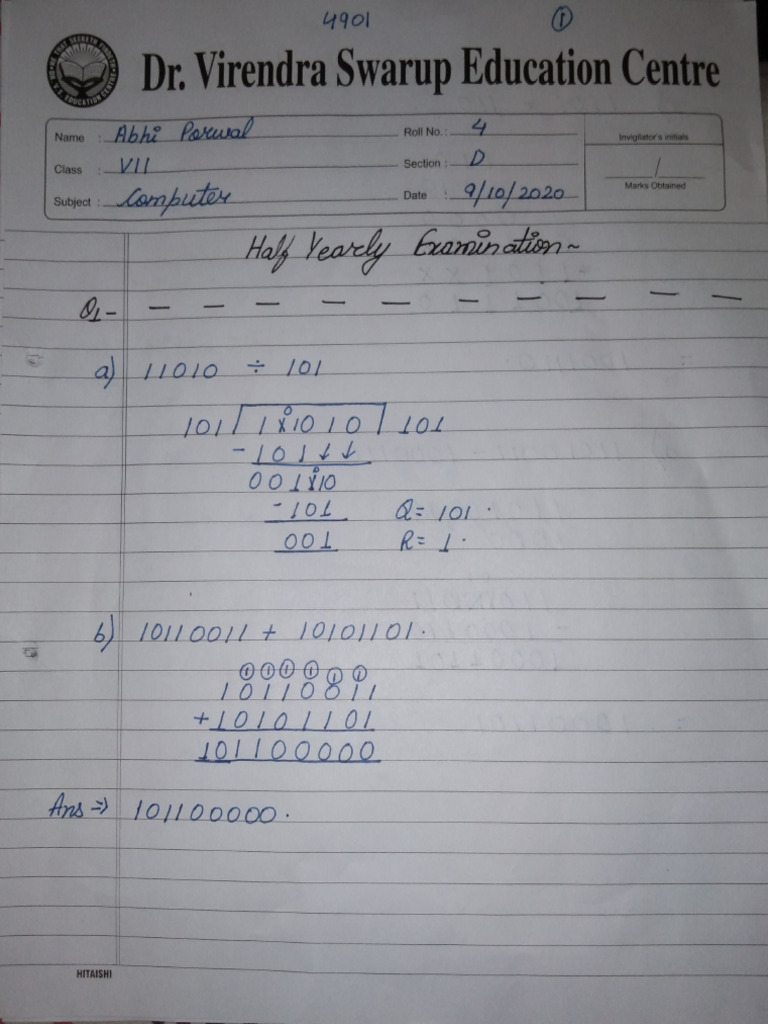 4901 ①
Dr. Virendra Swarup Education Centre
Name : Abhi Porwal Roll No.: 4 Invigilator's initials
Class : VII Section : D
Subject : Computer Date : 9/10/2020 Marks Obtained
Half Yearly Examination~
Q1- — — — — — — — — — — —
a) 11010 ÷ 101
101 1x1010 101
-101↓↓
001x10
-101 Q= 101.
001 R= 1.
b) 10110011 + 10101101.
①①①①①①
10110011
+10101101
101100000
Ans ⇒ 101100000.
HITAISHI